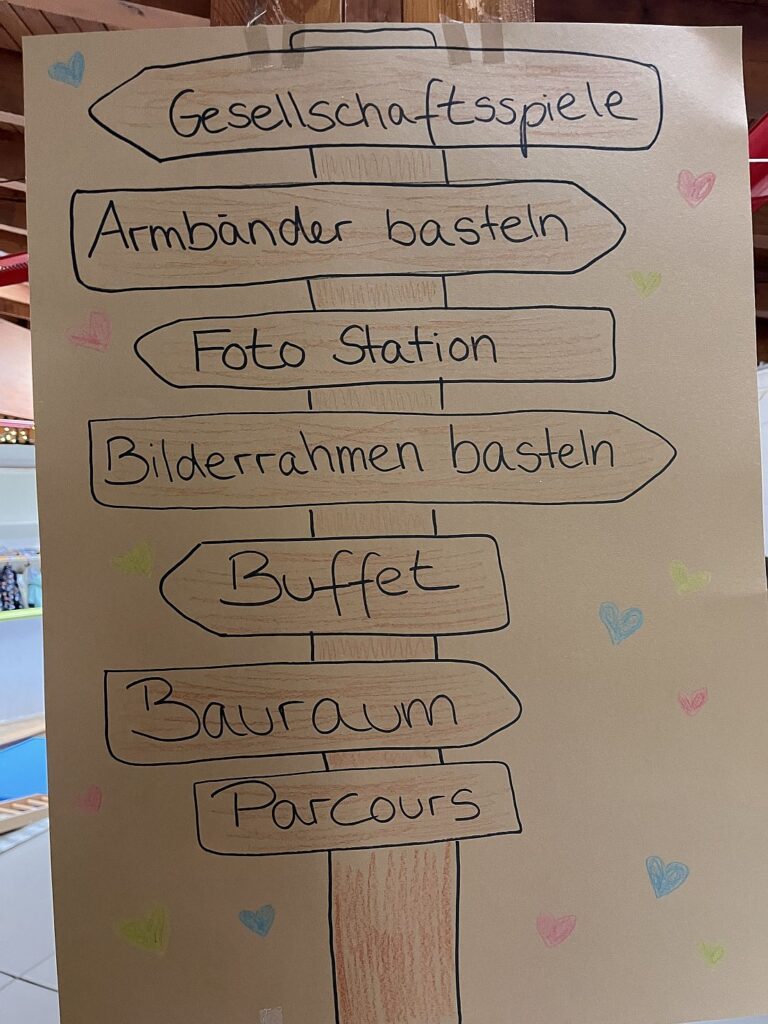 Gesellschaftsspiele
Armbänder basteln
Foto Station
Bilderrahmen basteln
Buffet
Bauraum
Parcours